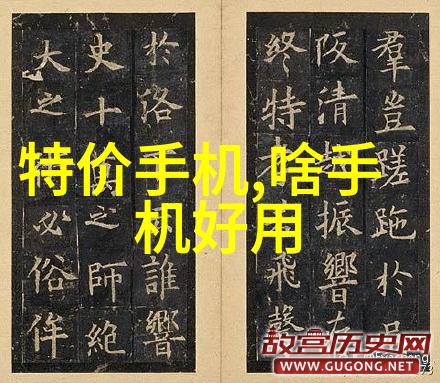 特价手机,啥手
机好用
羣豈蹉跎於
阪清振響
終特飛聲
於洛誰響
史十之師絶
大之必俗侔
故宫历史网
WWW.GUGONG.NET
73